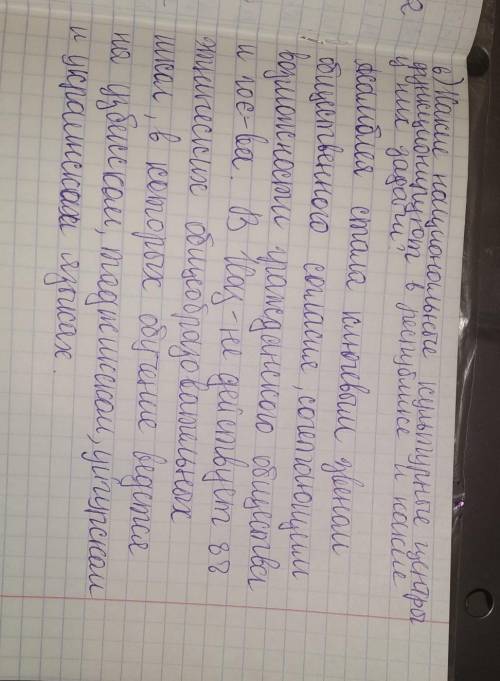 в) Какие национальные культурные центры
функционируют в республике и какие
у них задачи?
Асамблея стала ключевым звеном
общественного согласие, сочетающим
возможности гражданского общества
и гос-ва. В Каз-не действует 88
этнических общеобразовательных
школ, в которых обучение ведётся
на узбекском, таджикском, уйгурском
и украинских языках.